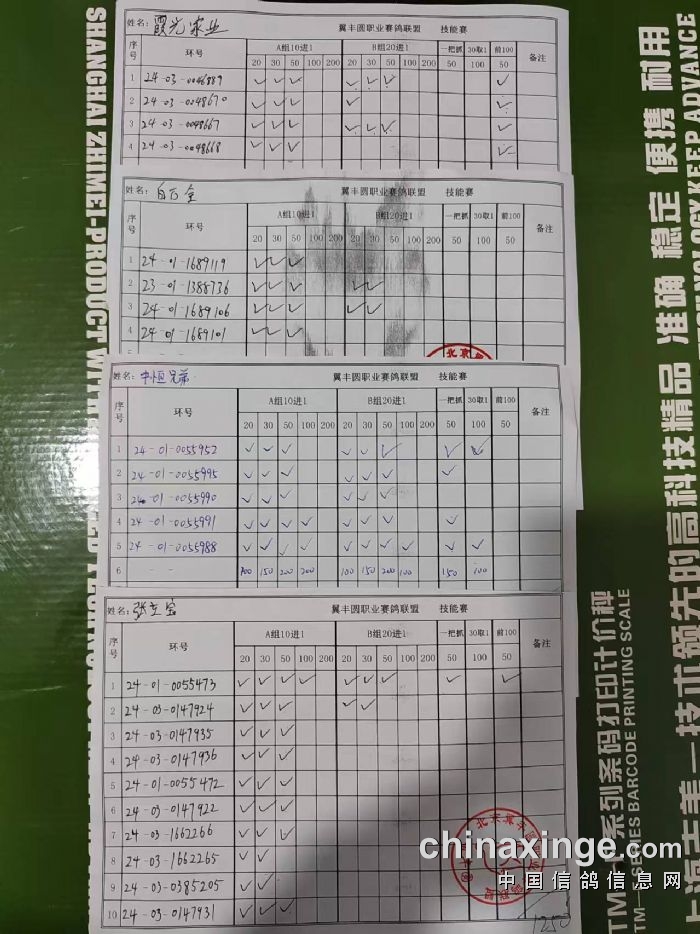 姓名: 霞光家业 翼丰圆职业赛鸽联盟 技能赛
序号 环号 A组10进1 B组20进1 一把抓 30取1 前100 备注
20 30 50 100 200 20 30 50 100 200 50 100 50
1 24-03-0046889 ✓ ✓ ✓ ✓ ✓ ✓ ✓
2 24-03-0048670 ✓ ✓ ✓ ✓ ✓
3 24-03-0048667 ✓ ✓ ✓ ✓ ✓ ✓ ✓
4 24-03-0048668 ✓ ✓ ✓ ✓
姓名: 翼丰圆职业赛鸽联盟 技能赛
序号 环号 A组10进1 B组20进1 一把抓 30取1 前100 备注
20 30 50 100 200 20 30 50 100 200 50 100 50
1 24-01-1689119 ✓ ✓ ✓
2 23-01-1388736 ✓ ✓ ✓ ✓ ✓
3 24-01-1689106 ✓ ✓ ✓ ✓ ✓
4 24-01-1689101 ✓ ✓ ✓
北京
姓名: 中恒兄弟 翼丰圆职业赛鸽联盟 技能赛
序号 环号 A组10进1 B组20进1 一把抓 30取1 前100 备注
20 30 50 100 200 20 30 50 100 200 50 100 50
1 24-01-0055952 ✓ ✓ ✓ ✓ ✓ ✓ ✓ ✓
2 24-01-0055995 ✓ ✓ ✓ ✓ ✓ ✓ ✓
3 24-01-0055990 ✓ ✓ ✓ ✓ ✓ ✓
4 24-01-0055991 ✓ ✓ ✓ ✓ ✓ ✓ ✓ ✓
5 24-01-0055988 ✓ ✓ ✓ ✓ ✓ ✓ ✓ ✓ ✓ ✓
6 - - 100 150 200 200 100 150 200 100 150 100
姓名: 张立宝 翼丰圆职业赛鸽联盟 技能赛
序号 环号 A组10进1 B组20进1 一把抓 30取1 前100 备注
20 30 50 100 200 20 30 50 100 200 50 100 50
1 24-01-0055473 ✓ ✓ ✓ ✓ ✓ ✓ ✓ ✓ ✓
2 24-03-0147924 ✓ ✓ ✓ ✓ ✓
3 24-03-0147935 ✓ ✓ ✓
4 24-03-0147936 ✓ ✓ ✓
5 24-01-0055472 ✓ ✓ ✓
6 24-03-0147922 ✓ ✓ ✓
7 24-03-1662266 ✓ ✓ ✓
8 24-03-1662265 ✓ ✓
9 24-03-0385205 ✓ ✓
10 24-03-0147931 ✓ ✓ ✓
1250
chinaxinge.com
中国信鸽信息网
SHANGHAI ZHIMEI-PRODUCT WITH
技术领先的高科技精品 准确 稳定 便携 耐用
TECHNOLOGY KEEP ADVANCE
系列条码打印计价秤
SERIES BARCODE PRINTING SCALE